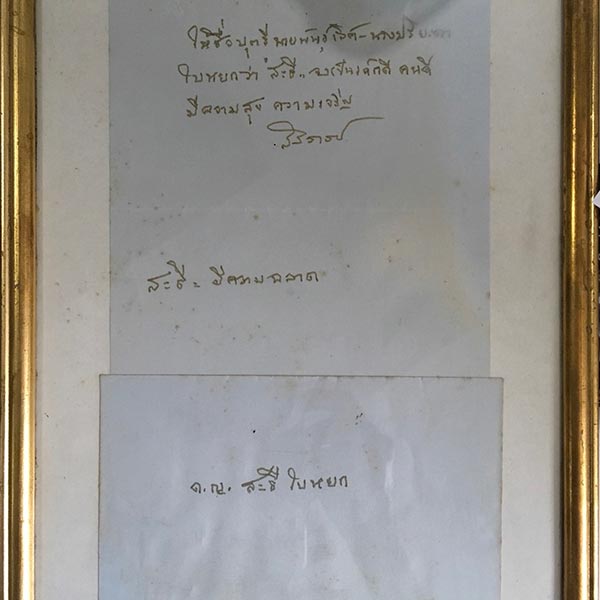 ให้ชื่อบุตรี นายพันธุ์เลิศ - นาง
ใบหยกว่า "สะธี" จงเป็นเด็กดี คนดี
มีความสุข ความเจริญ
สะธี = มีความฉลาด
ด.ญ. สะธี ใบหยก